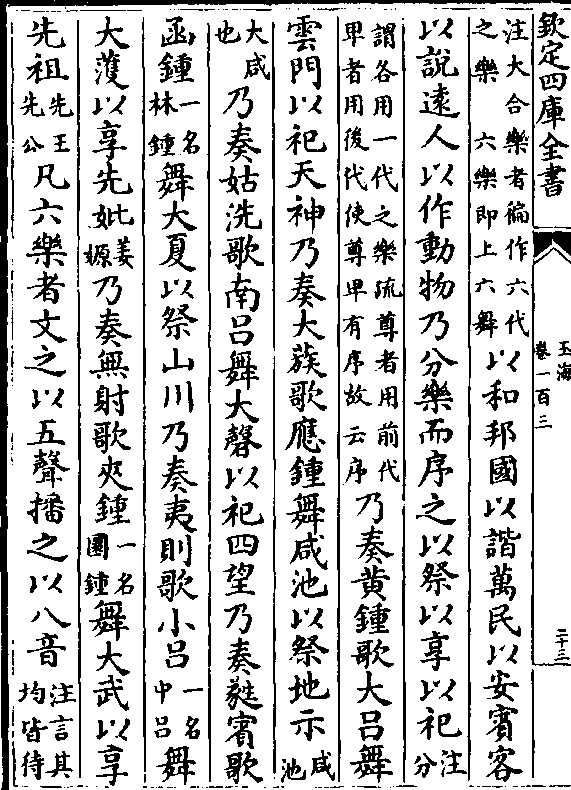 欽定四庫全書
玉海
卷一百三
二十三
注大合樂者徧作六代之樂 六樂即上六舞以和邦國以諧萬民以安賓客
以說遠人以作動物乃分樂而序之以祭以享以祀注分
謂各用一代之樂疏尊者用前代卑者用後代使尊卑有序故云序乃奏黃鍾歌大呂舞
雲門以祀天神乃奏大蔟歌應鍾舞咸池以祭地示咸池
大咸也乃奏姑洗歌南呂舞大磬以祀四望乃奏蕤賓歌
函鍾一名林鍾舞大夏以祭山川乃奏夷則歌小呂一名中呂舞
大濩以享先妣姜嫄乃奏無射歌夾鍾一名圜鍾舞大武以享
先祖先王先公凡六樂者文之以五聲播之以八音注言其均皆待